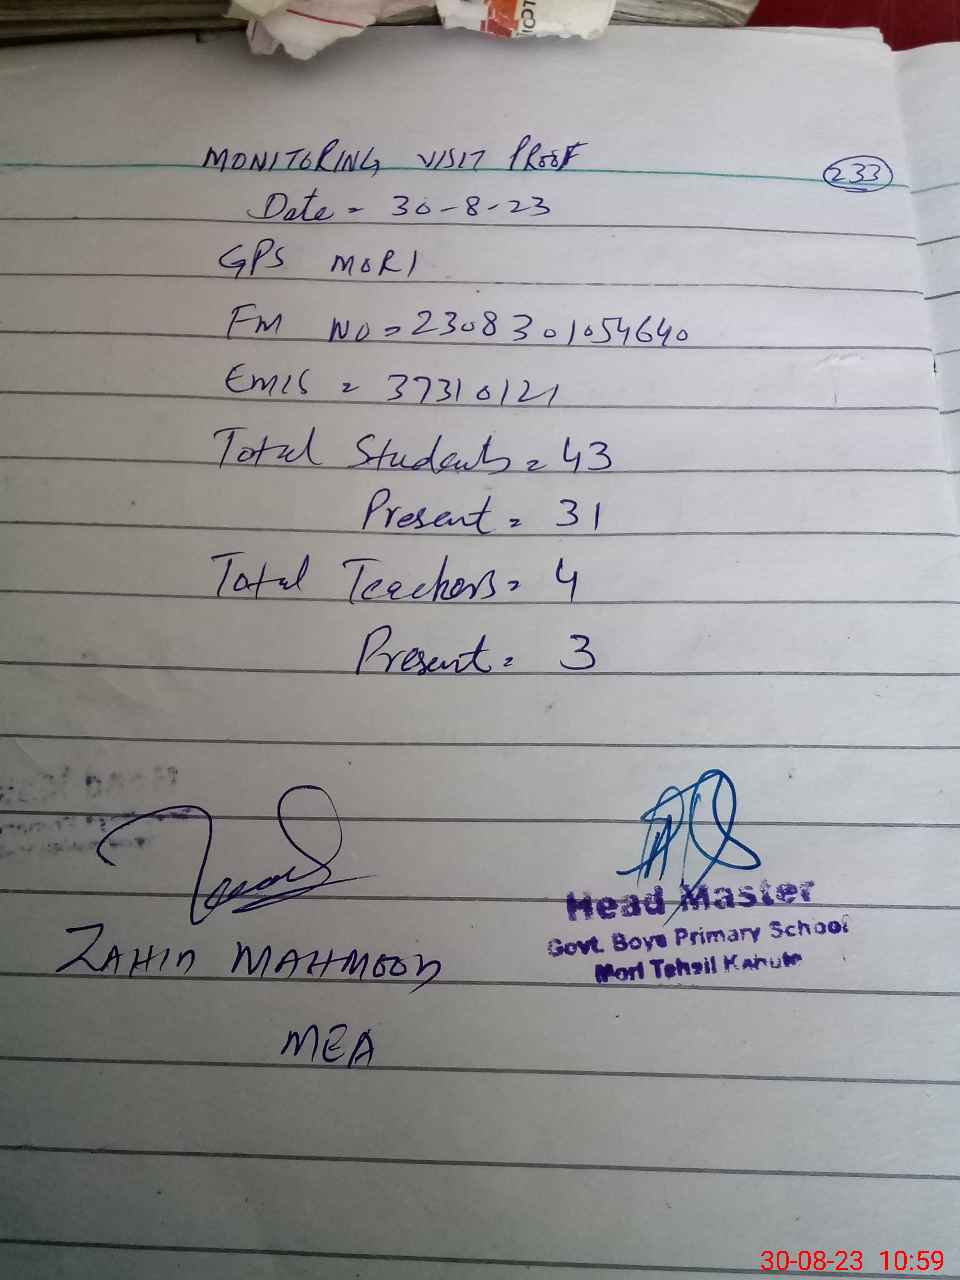 MONITORING VISIT PROOF
233
Date = 30-8-23
GPS MORI
FM NO = 2308301054640
EMIS = 37310121
Total Students = 43
Present = 31
Total Teachers = 4
Present = 3
Head Master
Govt. Boys Primary School
Mori Tehsil Kahuta
ZAHID MAHMOOD
MEA
30-08-23 10:59